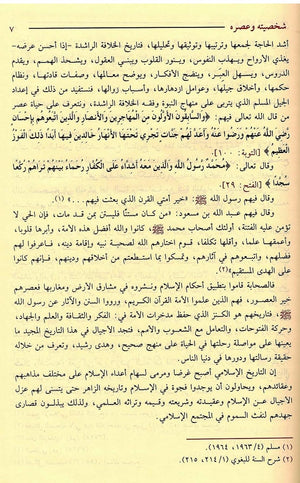 شخصيته وعصره
٧
أشد الحاجة لجمعها وترتيبها وتوثيقها وتحليلها، فتاريخ الخلافة الراشدة -إذا أحسن عرضه-
يغذي الأرواح ويهذب النفوس، وينور القلوب ويبني العقول، ويشحذ الهمم، ويقدم
الدروس، ويسهل العبر، وينضج الأفكار، ويوضح معالمها، وصفات قادتها، ونظام
حكمها، وأخلاق جيلها، وعوامل ازدهارها، وأسباب زوالها، فنستفيد من ذلك في إعداد
الجيل المسلم الذي يتربى على منهاج النبوة وفقه الخلافة الراشدة، ونتعرف على حياة عصر
من قال الله تعالى فيهم: ﴿وَالسَّابِقُونَ الأَوَّلُونَ مِنَ الْمُهَاجِرِينَ وَالأَنصَارِ وَالَّذِينَ اتَّبَعُوهُم بِإِحْسَانٍ
رَضِيَ اللهُ عَنْهُمْ وَرَضُوا عَنْهُ وَأَعَدَّ لَهُمْ جَنَّاتٍ تَجْرِي تَحْتَهَا الأَنْهَارُ خَالِدِينَ فِيهَا أَبَدًا ذَلِكَ الْفَوْزُ
الْعَظِيمُ﴾ [التوبة: ١٠٠].
وقال تعالى: ﴿مُحَمَّدٌ رَسُولُ اللهِ وَالَّذِينَ مَعَهُ أَشِدَّاءُ عَلَى الْكُفَّارِ رُحَمَاءُ بَيْنَهُمْ تَرَاهُمْ رُكَّعًا
سُجَّدًا﴾ [الفتح: ٢٩].
وقال فيهم رسول الله ﷺ: «خير أمتي القرن الذي بعثت فيهم...»(١).
وقال فيهم عبد الله بن مسعود: «من كان مستنًا فليستن بمن قد مات، فإن الحي لا
تؤمن عليه الفتنة، أولئك أصحاب محمد ﷺ، كانوا والله أفضل هذه الأمة، وأبرها قلوبا،
وأعمقها علما، وأقلها تكلفا، قوم اختارهم الله لصحبة نبيه وإقامة دينه، فاعرفوا لهم
فضلهم، واتبعوهم في آثارهم، وتمسكوا بما استطعتم من أخلاقهم ودينهم، فإنهم كانوا
على الهدى المستقيم»(٢).
فالصحابة قاموا بتطبيق أحكام الإسلام ونشروه في مشارق الأرض ومغاربها فعصرهم
خير العصور، فهم الذين علموا الأمة القرآن الكريم، ورووا السنن والآثار عن رسول الله
ﷺ، فتاريخهم هو الكنز الذي حفظ مدخرات الأمة في: الفكر والثقافة والعلم والجهاد،
وحركة الفتوحات، والتعامل مع الشعوب والأمم، فتجد الأجيال في هذا التاريخ المجيد ما
يعينها على مواصلة رحلتها في الحياة على منهج صحيح، وهدي رشيد، وتعرف من خلاله
حقيقة رسالتها ودورها في دنيا الناس.
إن التاريخ الإسلامي أصبح غرضا ومرمى لسهام أعداء الإسلام على مختلف مذاهبهم
وعقائدهم، ويحاولون أن يوجدوا فجوة في الإسلام وتاريخه الزاهر حتى يتسنى لهم عزل
الأجيال عن الإسلام وعقيدته وشريعته وقيمه وتراثه العلمي، ولذلك يبذلون قصارى
جهدهم لنفث السموم في المجتمع الإسلامي.
(١) مسلم (١٩٦٣/٤، ١٩٦٤).
(٢) شرح السنة للبغوي (٢١٤/١، ٢١٥).